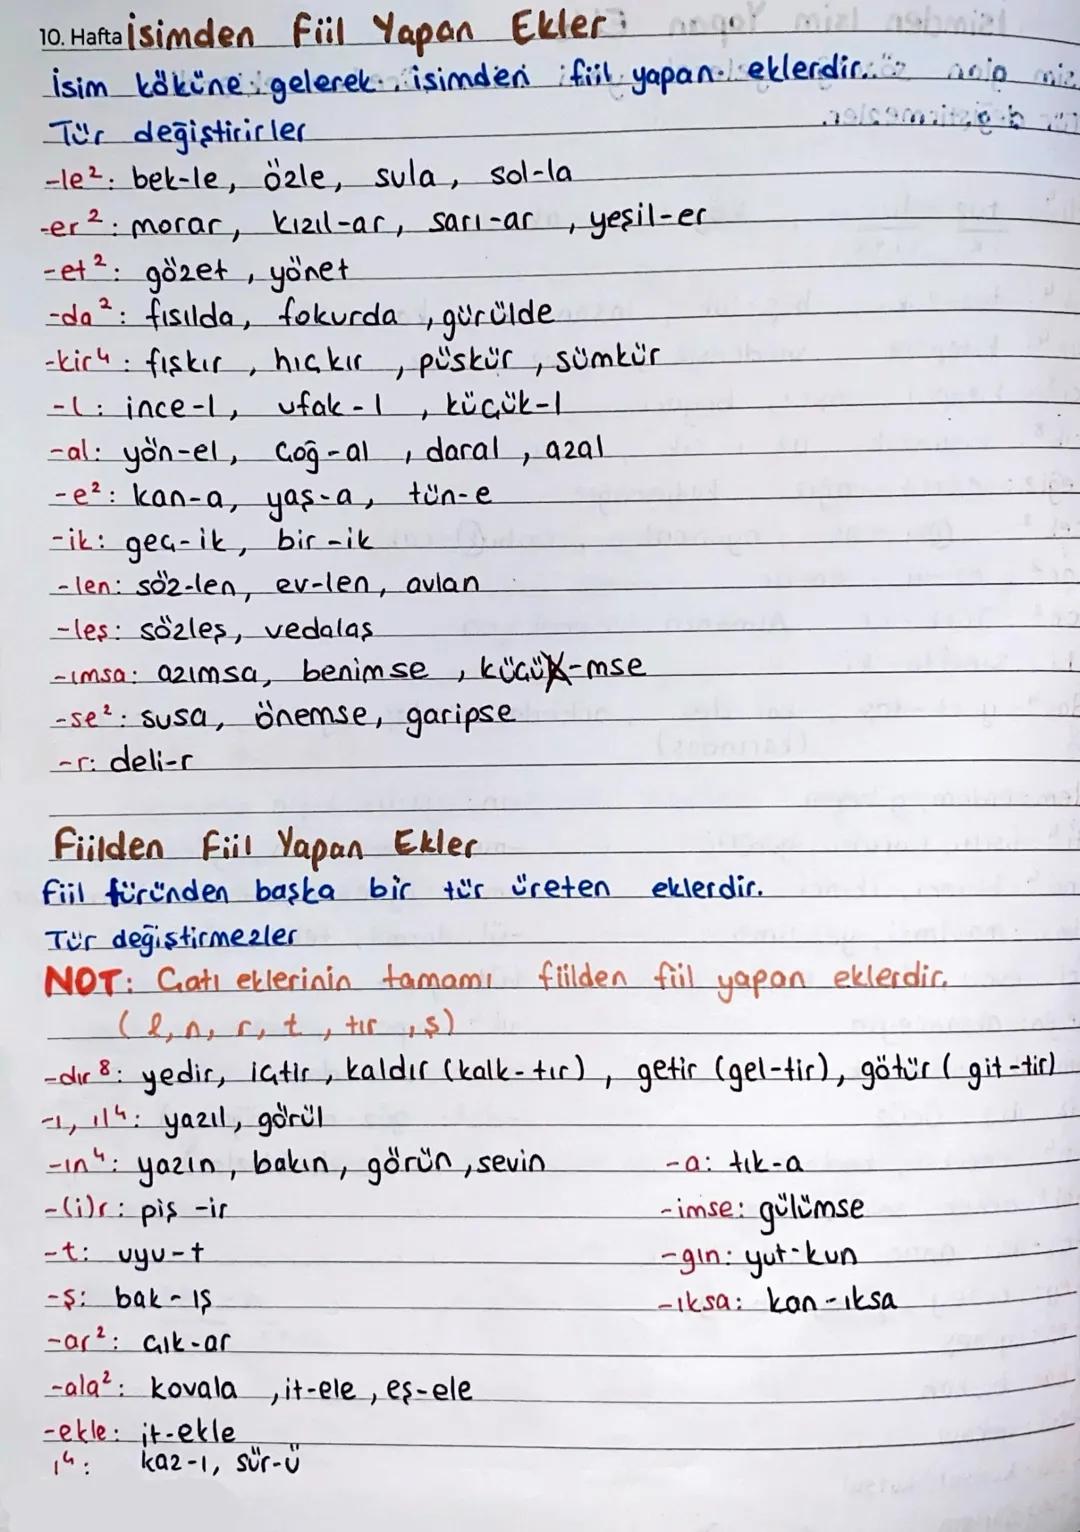 10. Hafta İsimden Fiil Yapan Ekler:
İsim köküne gelerek isimden fiil yapan eklerdir.
Tür değiştirirler
-le²: bek-le, özle, sula, sol-la
-er²: morar, kızıl-ar, sarı-ar, yeşil-er
-et²: gözet, yönet
-da²: fısılda, fokurda, gürülde
-kir⁴: fışkır, hıçkır, püskür, sümkür
-l: ince-l, ufak-l, küçük-l
-al: yön-el, çoğ-al, daral, azal
-e²: kan-a, yaş-a, tün-e
-ik: geç-ik, bir-ik
-len: söz-len, ev-len, avlan
-leş: sözleş, vedalaş
-ımsa: azımsa, benimse, küçük-mse
-se²: susa, önemse, garipse
-r: deli-r
Fiilden Fiil Yapan Ekler
Fiil türünden başka bir tür üreten eklerdir.
Tür değiştirmezler
NOT: Çatı eklerinin tamamı fiilden fiil yapan eklerdir.
(l, n, r, t, tır, ş)
-dır⁸: yedir, içtir, kaldır (kalk-tır), getir (gel-tir), götür (git-tir)
-ı, ıl⁴: yazıl, görül
-ın⁴: yazın, bakın, görün, sevin -a: tık-a
-(i)r: piş-ir -imse: gülümse
-t: uyu-t -gın: yut-kun
-ş: bak-ış -ıksa: kan-ıksa
-ar²: çık-ar
-ala²: kovala, it-ele, eş-ele
-ekle: it-ekle
ı⁴: kaz-ı, sür-ü